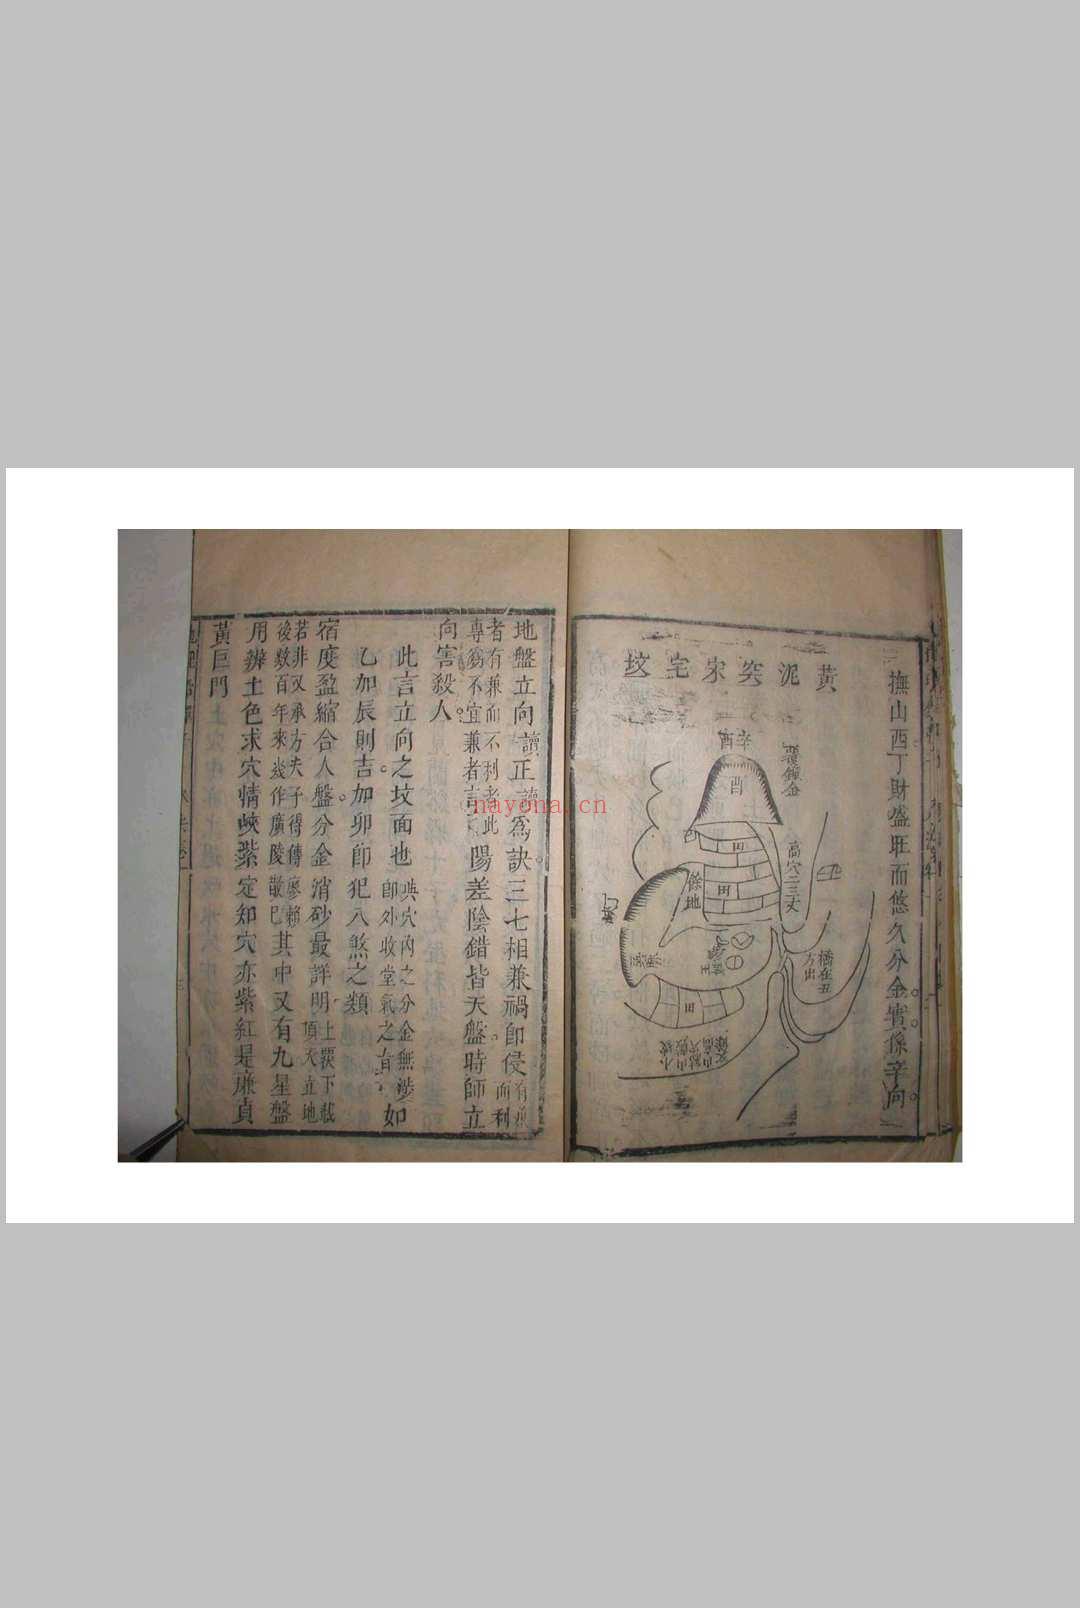 撫山西丁財盛旺而悠久分金實係辛向
黃泥突宋宅坟
辛酉
酉
覆鐘金
高穴二三丈
田
田
餘地
橋在丑
方出
田
地盤立向讀正讀為訣三七相兼禍即侵
者有兼而不利者此
專為不宜兼者言
陽差陰錯皆天盤時師立
向害殺人
此言立向之坟面也
與穴內之分金無涉
即外收堂氣之
如
乙加辰則吉加卯即犯八煞之類
宿度盈縮合人盤分金消砂最詳明
頂天立地
若非又承方夫子得傳廖賴
後數百年來幾作廣陵散巳
其中又有九星盤
用辨土色求穴情峽紫定知穴亦紫紅是廉貞
黃巨門
nayona.cn